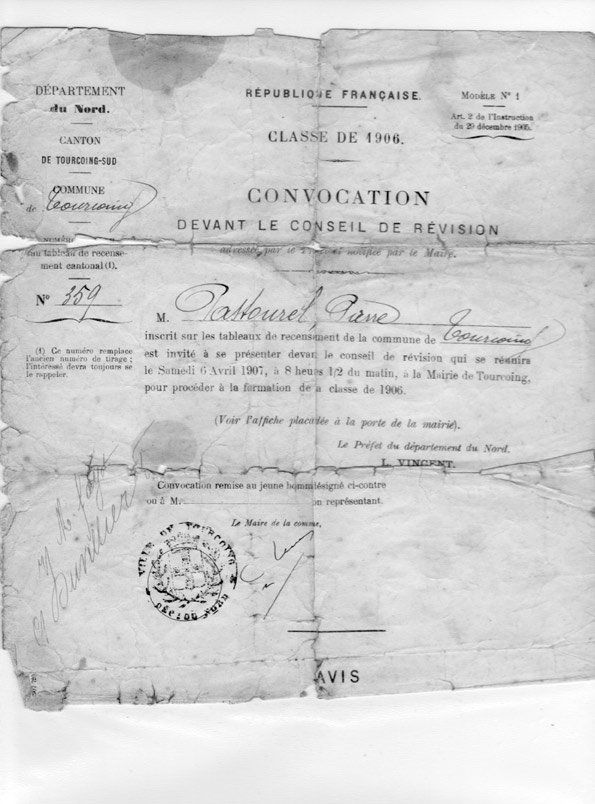 DÉPARTEMENT
du Nord.
CANTON
DE TOURCOING-SUD
COMMUNE
de Tourcoing
NUMÉRO
au tableau de recense-
ment cantonal (1).
N° 359
(1) Ce numéro remplace
l'ancien numéro de tirage ;
l'intéressé devra toujours se
le rappeler.
RÉPUBLIQUE FRANÇAISE.
CLASSE DE 1906.
MODÈLE N° 1
Art. 2 de l'Instruction
du 29 décembre 1905.
CONVOCATION
DEVANT LE CONSEIL DE RÉVISION
adressée par le Préfet notifiée par le Maire.
M. Pastourel, Pierre
inscrit sur les tableaux de recensement de la commune de Tourcoing
est invité à se présenter devan le conseil de révision qui se réunira
le Samedi 6 Avril 1907, à 8 heures 1/2 du matin, à la Mairie de Tourcoing,
pour procéder à la formation de a classe de 1906.
(Voir l'affiche placadée à la porte de la mairie).
Le Préfet du département du Nord.
L. VINCENT.
Convocation remise au jeune hommésigné ci-contre
ou à M. on représentant.
Le Maire de la comme,
VILLE DE TOURCOING
DÉP: DU NORD
AVIS